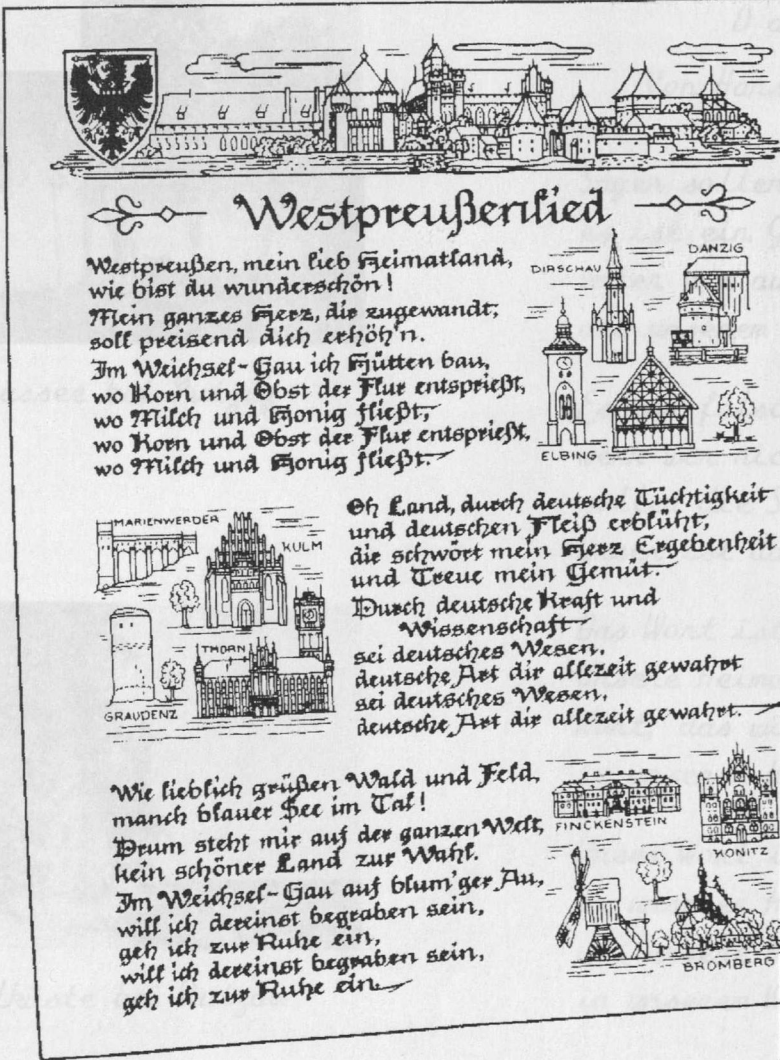 Westpreußenlied
Westpreußen, mein lieb Heimatland,
wie bist du wunderschön!
Mein ganzes Herz, dir zugewandt,
soll preisend dich erhöh'n.
Im Weichsel-Gau ich Hütten bau,
wo Korn und Obst der Flur entsprießt,
wo Milch und Honig fließt,
wo Korn und Obst der Flur entsprießt,
wo Milch und Honig fließt.
DIRSCHAU
DANZIG
ELBING
MARIENWERDER
KULM
THORN
GRAUDENZ
Oh Land, durch deutsche Tüchtigkeit
und deutschen Fleiß erblüht,
dir schwört mein Herz Ergebenheit
und Treue mein Gemüt.
Durch deutsche Kraft und
Wissenschaft
sei deutsches Wesen,
deutsche Art dir allezeit gewahrt
sei deutsches Wesen,
deutsche Art dir allezeit gewahrt.
Wie lieblich grüßen Wald und Feld,
manch blauer See im Tal!
Drum steht mir auf der ganzen Welt,
kein schöner Land zur Wahl.
Im Weichsel-Gau auf blum'ger Au,
will ich dereinst begraben sein,
geh ich zur Ruhe ein,
will ich dereinst begraben sein,
geh ich zur Ruhe ein.
FINCKENSTEIN
KONITZ
BROMBERG